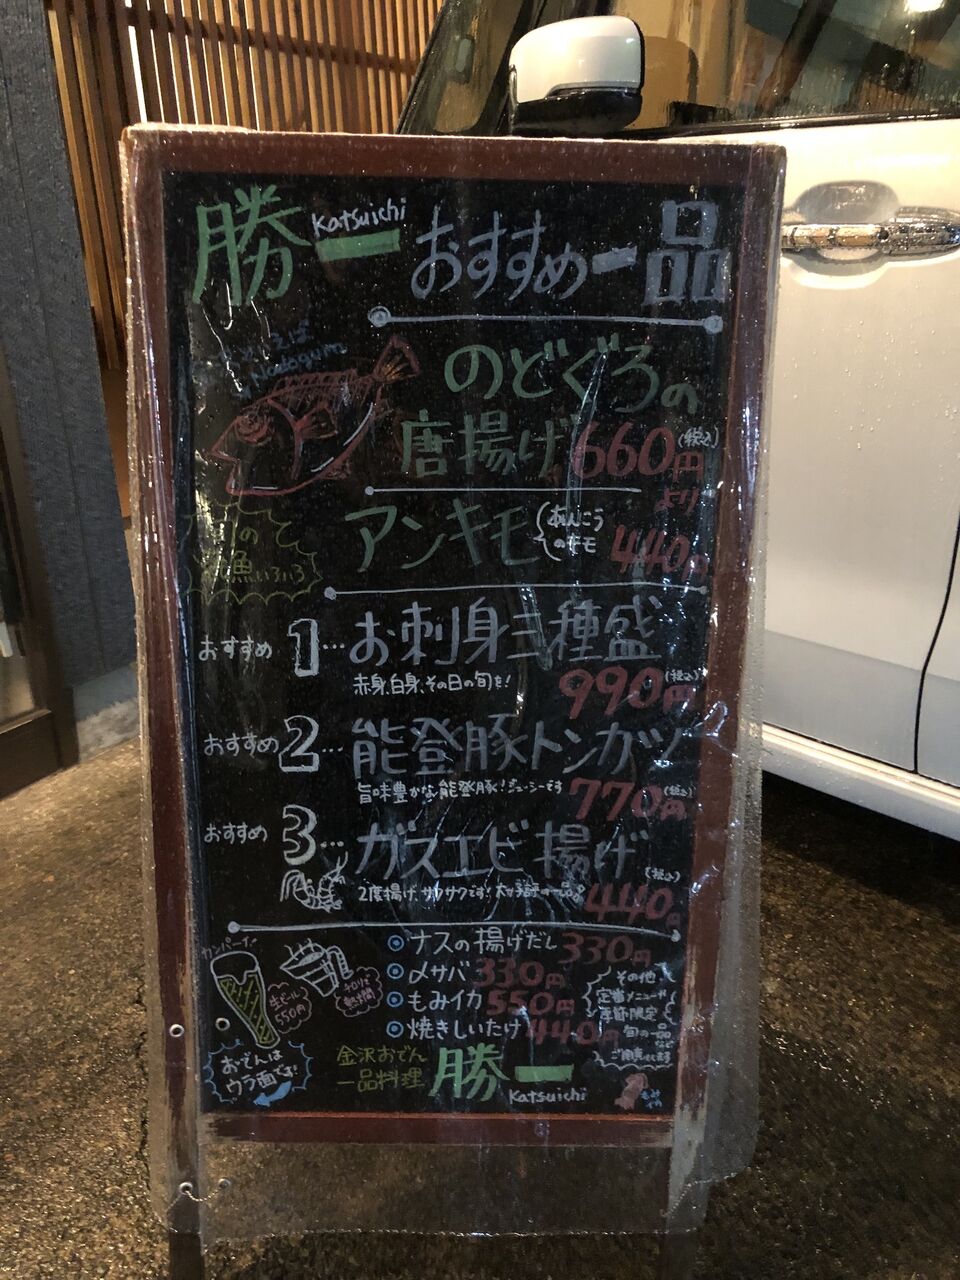 勝一 Katsuichi おすすめ一品
のどぐろの
唐揚げ 660円 (税込)
より
アンキモ あんこう
のキモ 440円
魚いろいろ
おすすめ 1… お刺身三種盛
赤身、白身、その日の旬を! 990円 (税込)
おすすめ 2… 能登豚トンカツ
旨味豊かな能登豚!ジューシーです 770円 (税込)
おすすめ 3… ガスエビ揚げ
2度揚げ、サクサクです! 440円 (税込)
カンパーイ!
生ビール
550円
チロリで
熱燗
ナスの揚げだし 330円
〆サバ 330円
もみイカ 550円
焼きしいたけ 440円
その他
定番メニューや
季節限定
旬の一品
など
ご用意してます
おでんは
ウラ面です!
金沢おでん
一品料理
勝一
Katsuichi